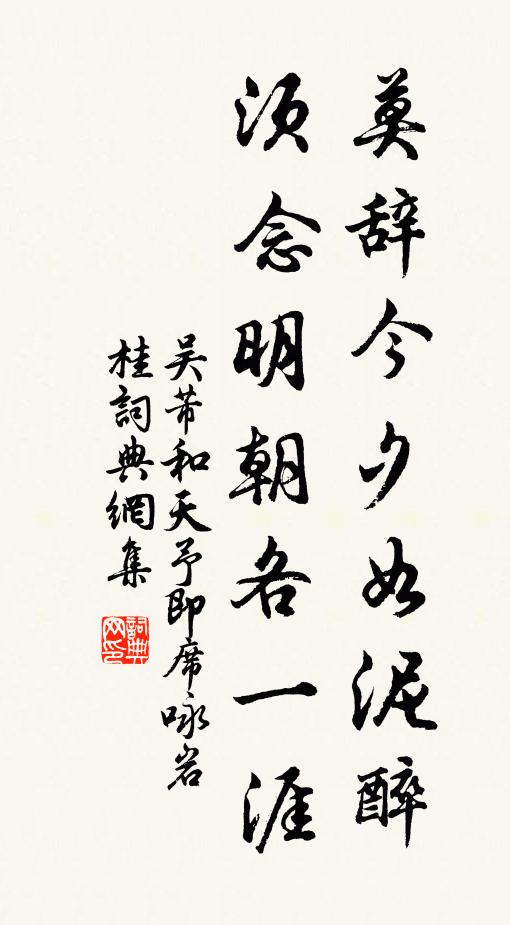 莫辞今夕如泥醉
须念明朝各一涯
吴芾和天予即席咏岩
桂詞典網集
詞典网印